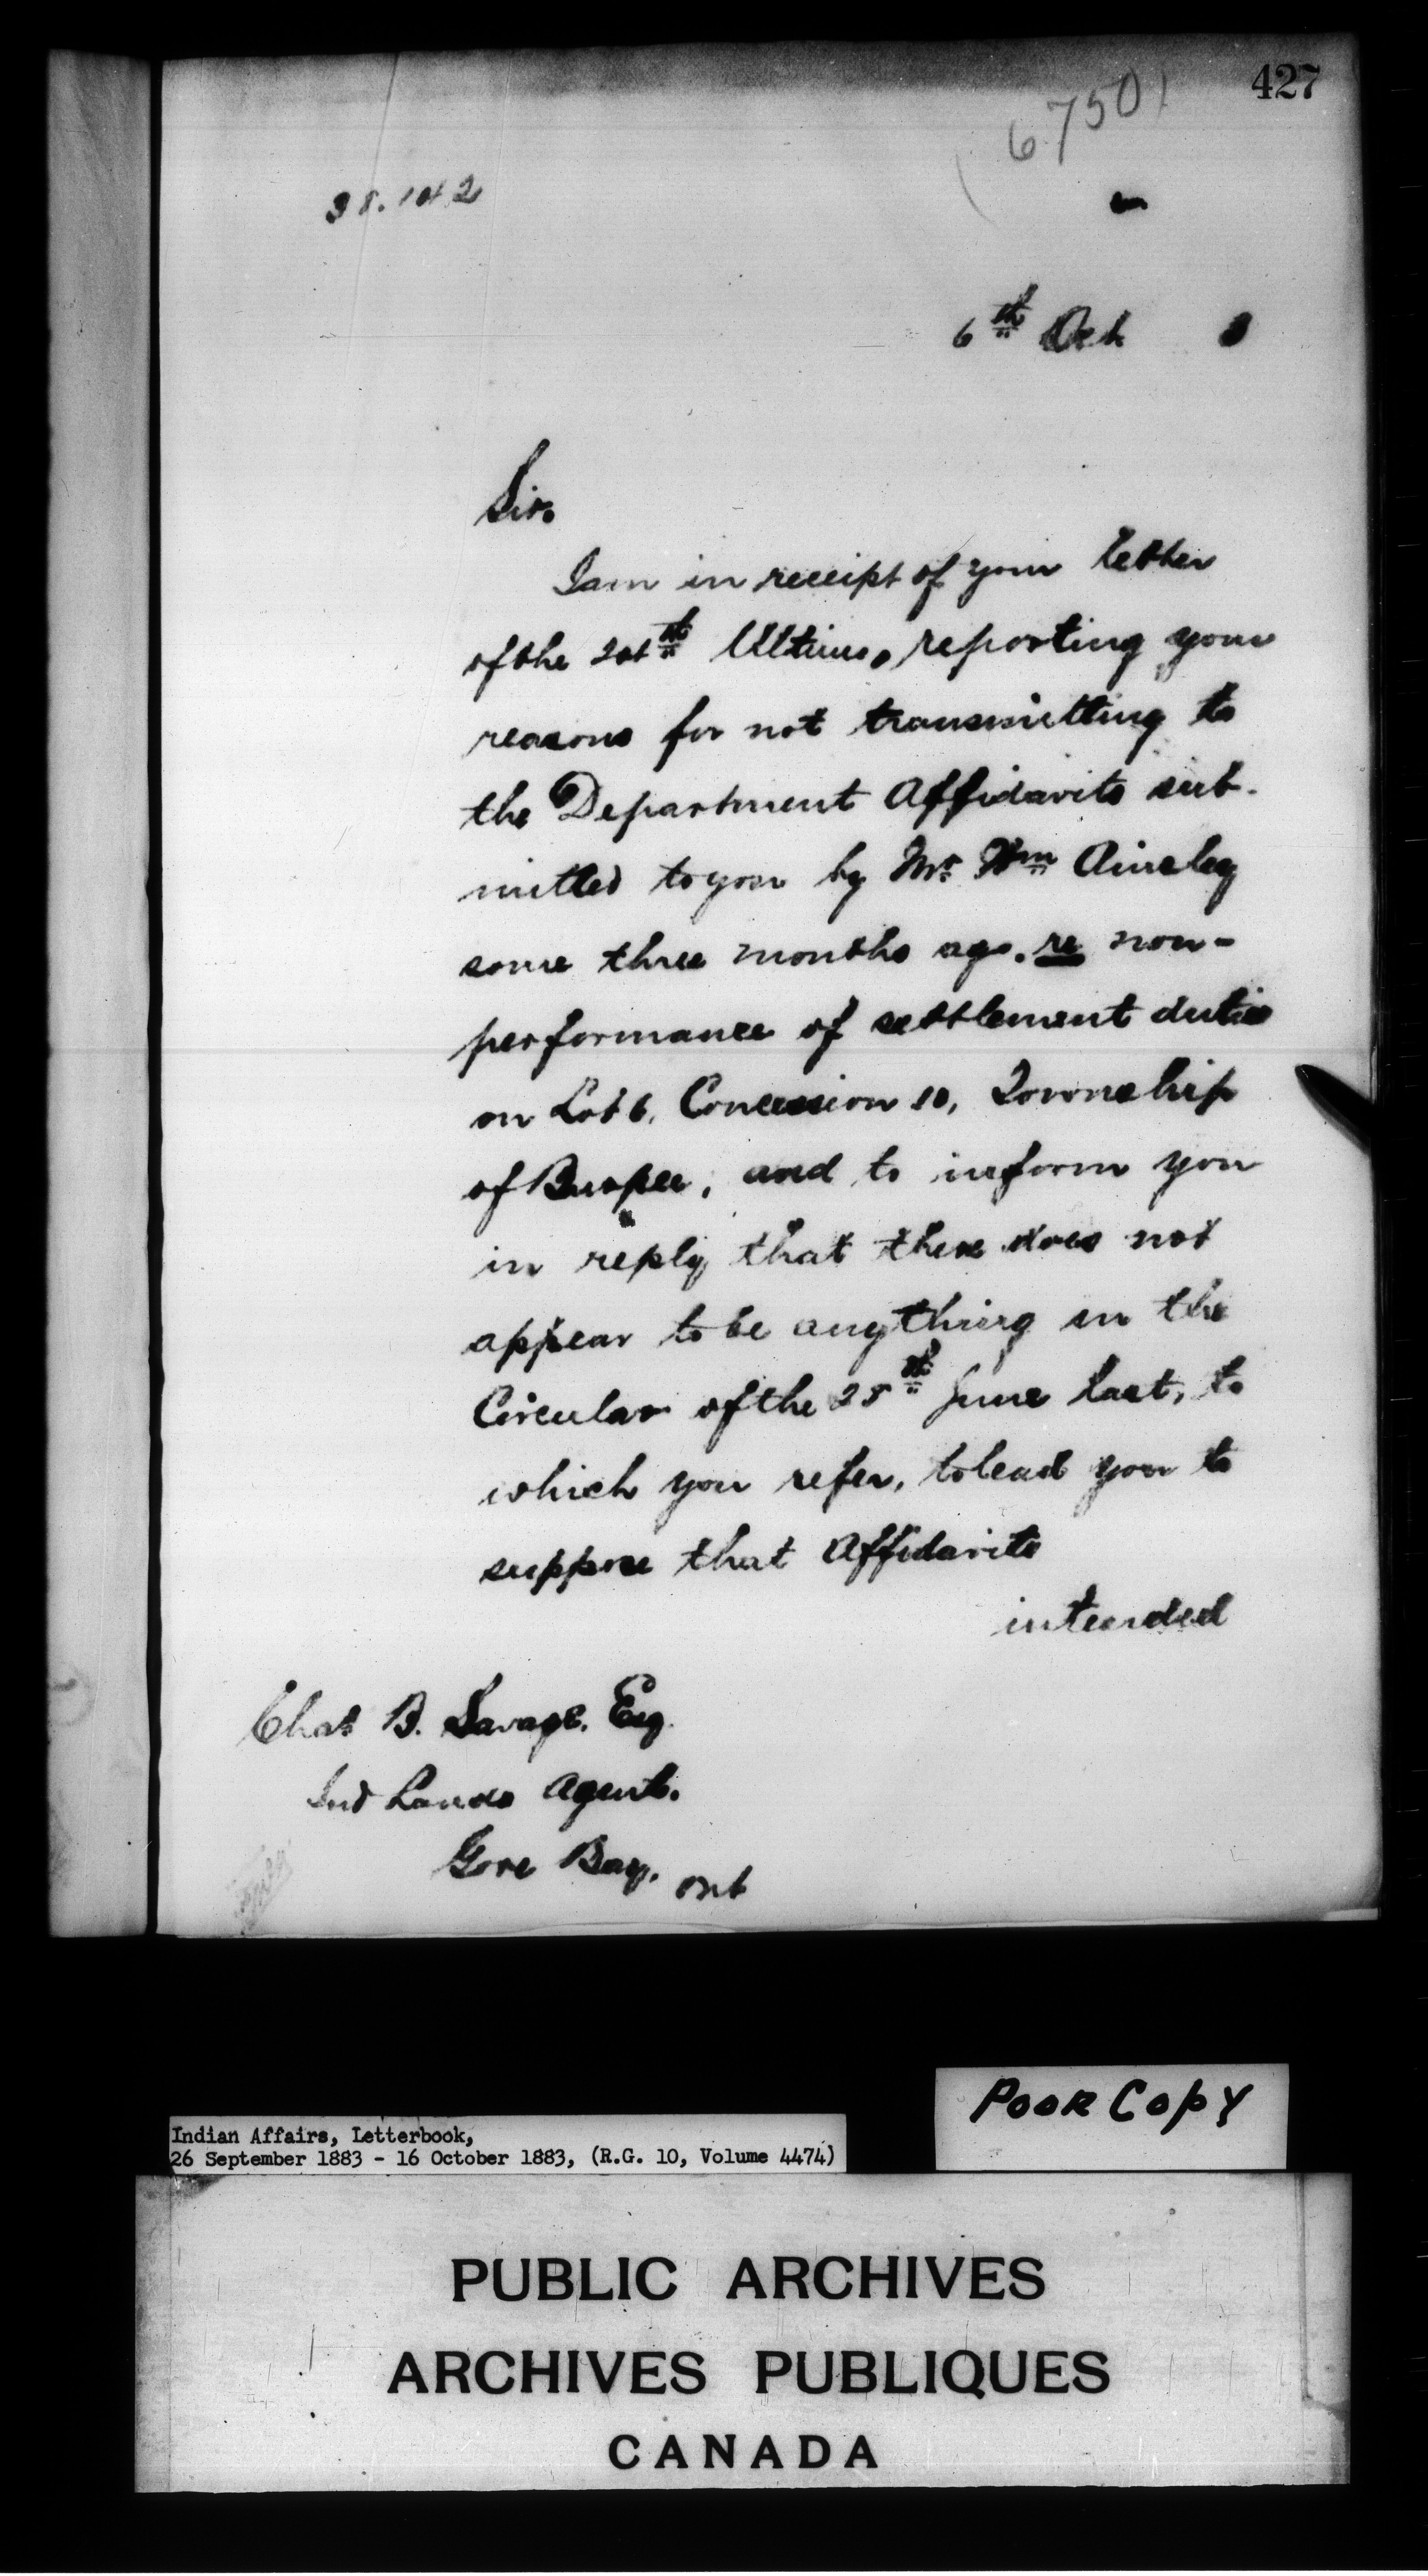 427
(6750)
38.142
6th Oct 3
Sir.
I am in receipt of your letter
of the Ultimo, reporting your
reasons for not transmitting to
the Department Affidavits sub-
mitted to you by Mr. Wm Ainsley
some three months ago. re non-
performance of settlement duties
on Lot 6, Concession 10, Township
of Burpee, and to inform you
in reply that there does not
appear to be anything in the
Circular of the 25th June last, to
which you refer, to lead you to
suppose that Affidavits
intended
Chas B. Savage. Esq.
Ind Lands Agent.
Gore Bay. Ont
Poor Copy
Indian Affairs, Letterbook,
26 September 1883 - 16 October 1883, (R.G. 10, Volume 4474)
PUBLIC ARCHIVES
ARCHIVES PUBLIQUES
CANADA